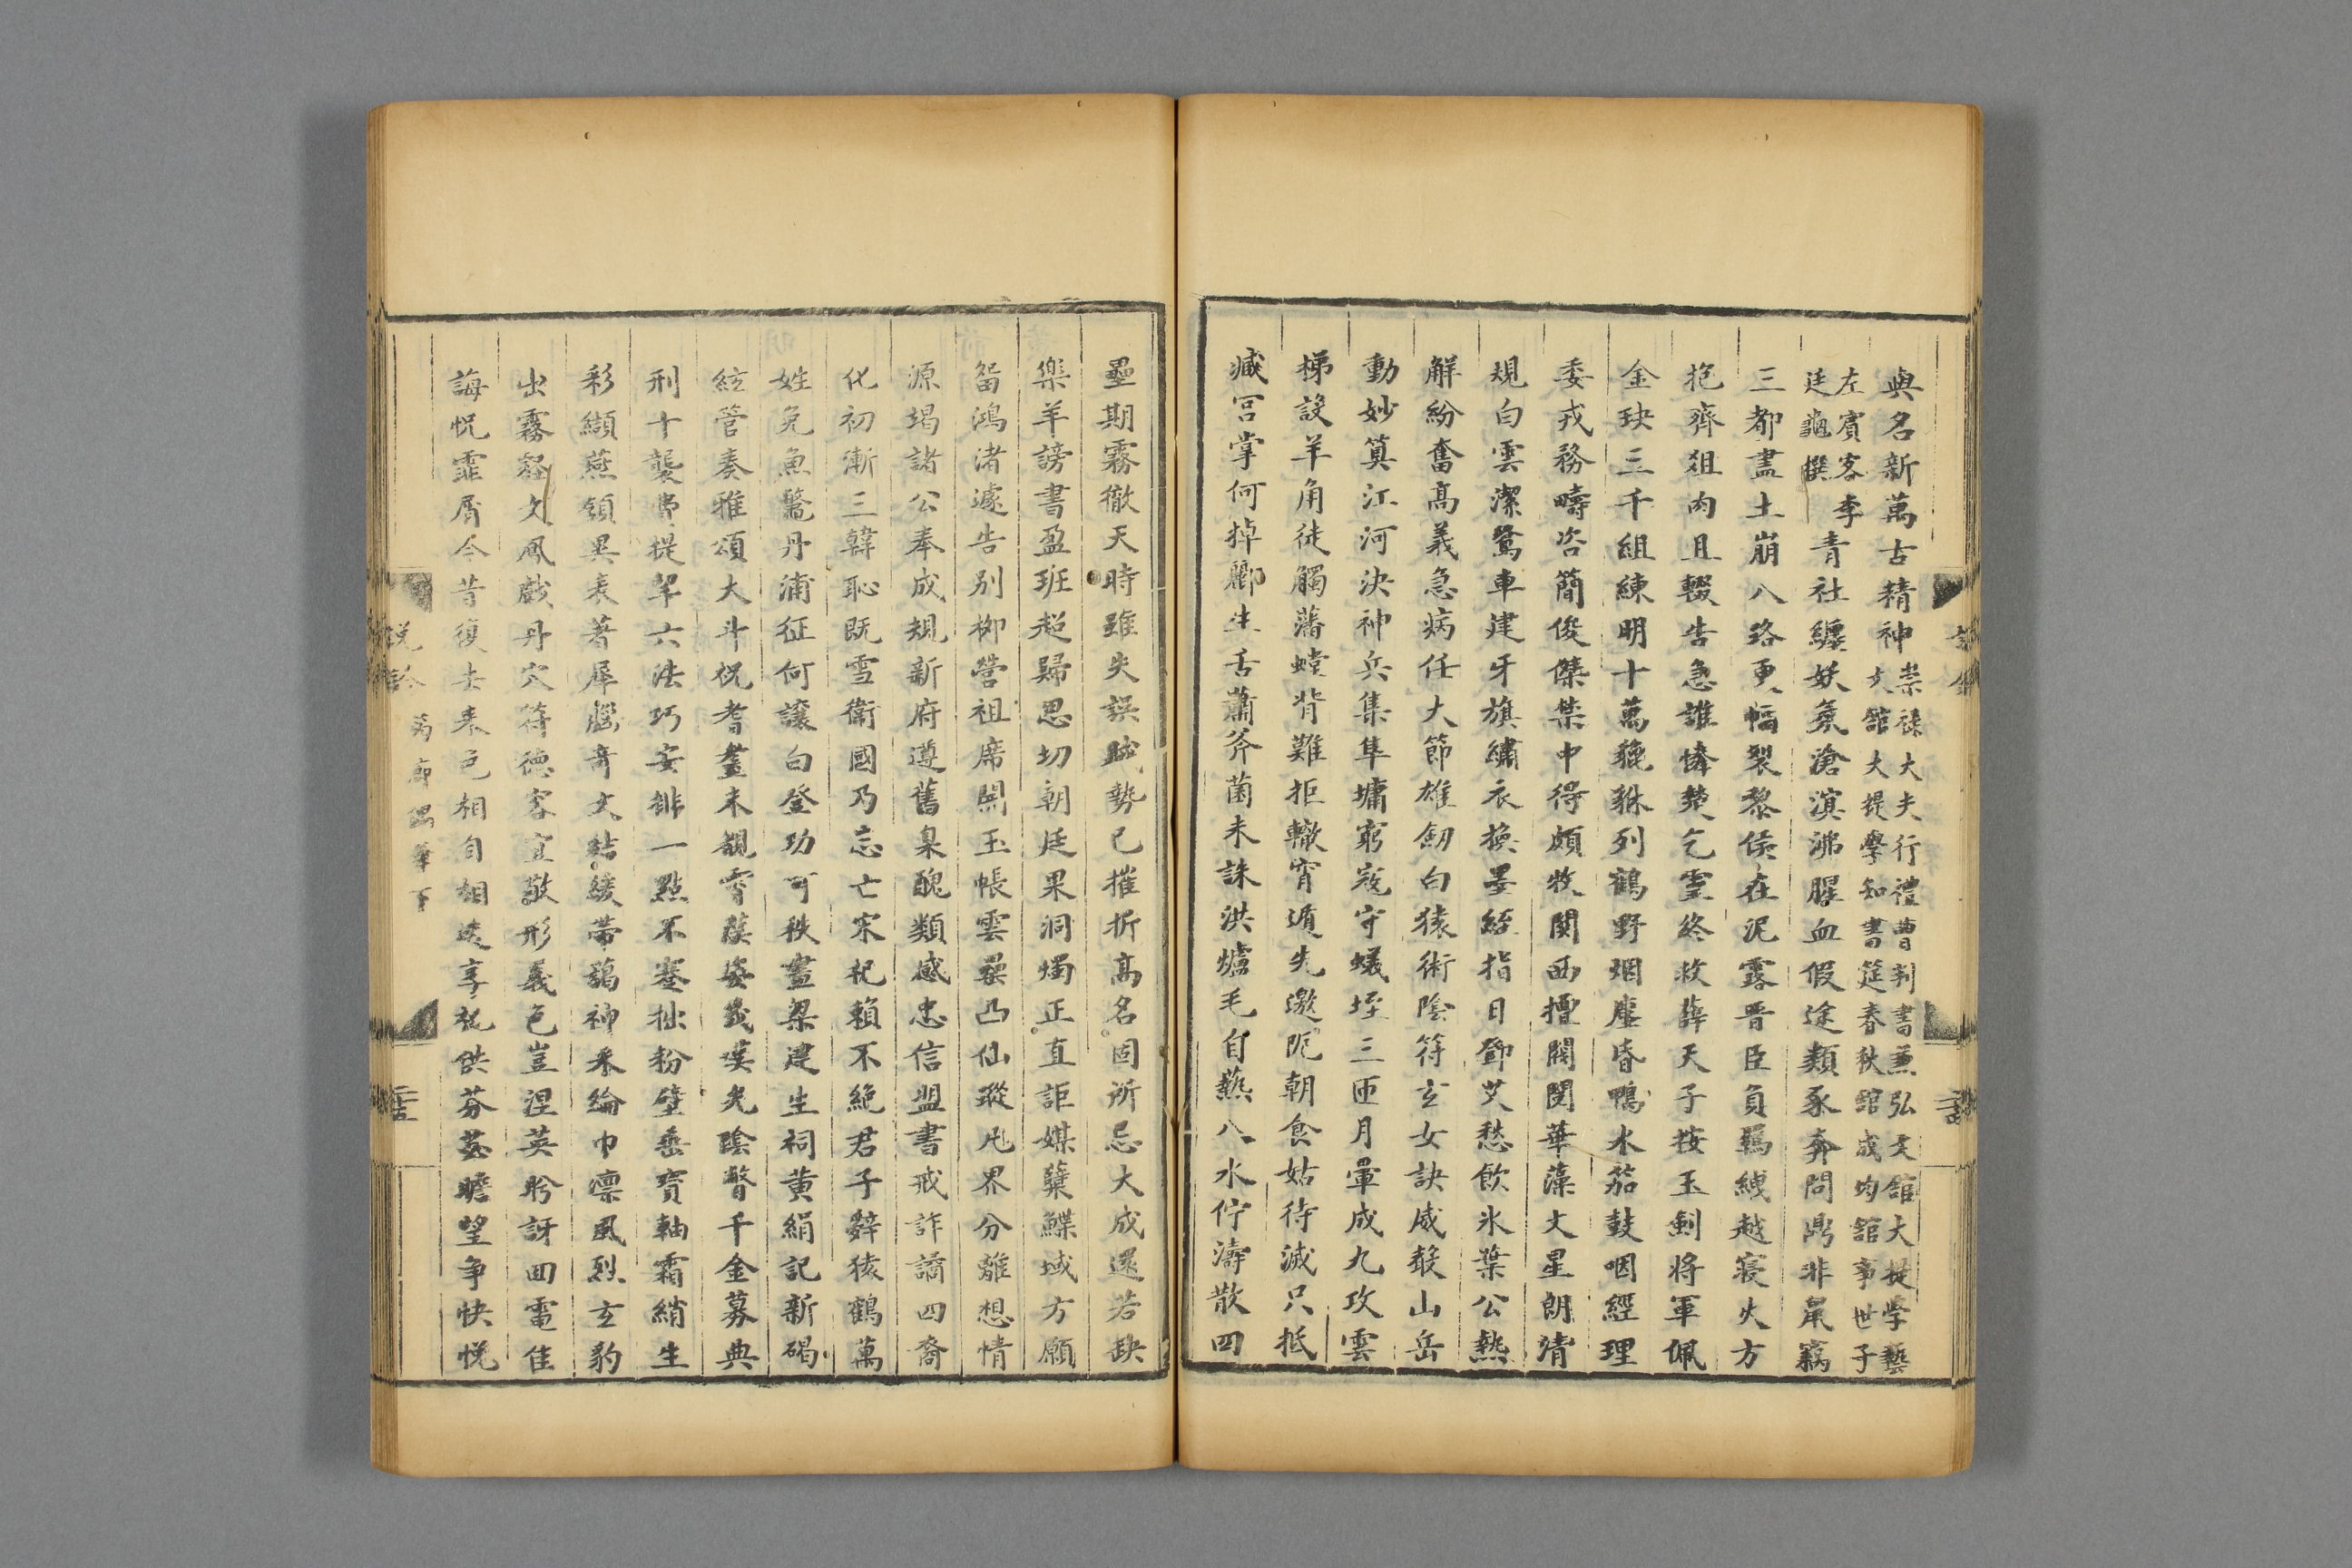 與名新萬古精神崇祿大夫行禮曹判書兼弘文館大提學藝
文館大提學知書筵春秋館成均館事世子
左賓客李
廷龜撰
青社纏妖氛滄溟沸腥血假途類豕奔問鼎非鼠竊
三都盡土崩八路更幅裂黎侯在泥露晋臣負羈紲越寢火方
抱齊俎肉且輟告急誰憐楚乞靈終救薛天子按玉劍將軍佩
金玦三千組練明十萬貔貅列鶴野烟塵昏鴨水笳鼓咽經理
委戎務疇咨簡俊傑禁中得頗牧関西擅閥閱華藻文星朗清
規白雲潔鴛車建牙旗繡衣換墨絰指日鄧艾愁飲氷葉公熱
解紛奮高義急病任大節雄劒白猿術陰符玄女訣威聲山岳
動妙筭江河決神兵集隼墉窮寇守蟻垤三匝月暈成九攻雲
梯設羊角徒觸藩螳背難拒轍宵遁先邀阨朝食姑待滅只抵
臧宮掌何掉酈生舌蕭斧菌未誅洪爐毛自爇八水佇濤散四
壘期霧徹天時雖失誤賊勢已摧折高名固所忌大成還若缺
樂羊謗書盈班超歸思切朝廷果洞燭正直詎媒糵鰈域方願
留鴻渚遽告别柳營祖席開玉帳雲罍凸仙蹤凡界分離想情
源竭諸公奉成規新府遵舊臬醜類感忠信盟書戒詐譎四裔
化初漸三韓恥既雪衛國乃忘亡宋祀賴不絶君子辭猿鶴萬
姓免魚鱉丹浦征何讓白登功可秩畫梁建生祠黄絹記新碣
絃管奏雅頌大斗祝耆耋未覩霄漢姿幾嘆光陰瞥千金募典
刑十襲費提挈六法巧安排一點不蹇拙粉壁垂寶軸霜綃生
彩纈燕頷異表著犀腦奇文結緩帶鷊神采綸巾凛風烈玄豹
出霧豁文鳳戱丹穴符德客宜敬形羲色豈涅英眄訝回電佳
誨恍霏屑今昔復去來色相自相迭享祀供芬苾瞻望争快悦